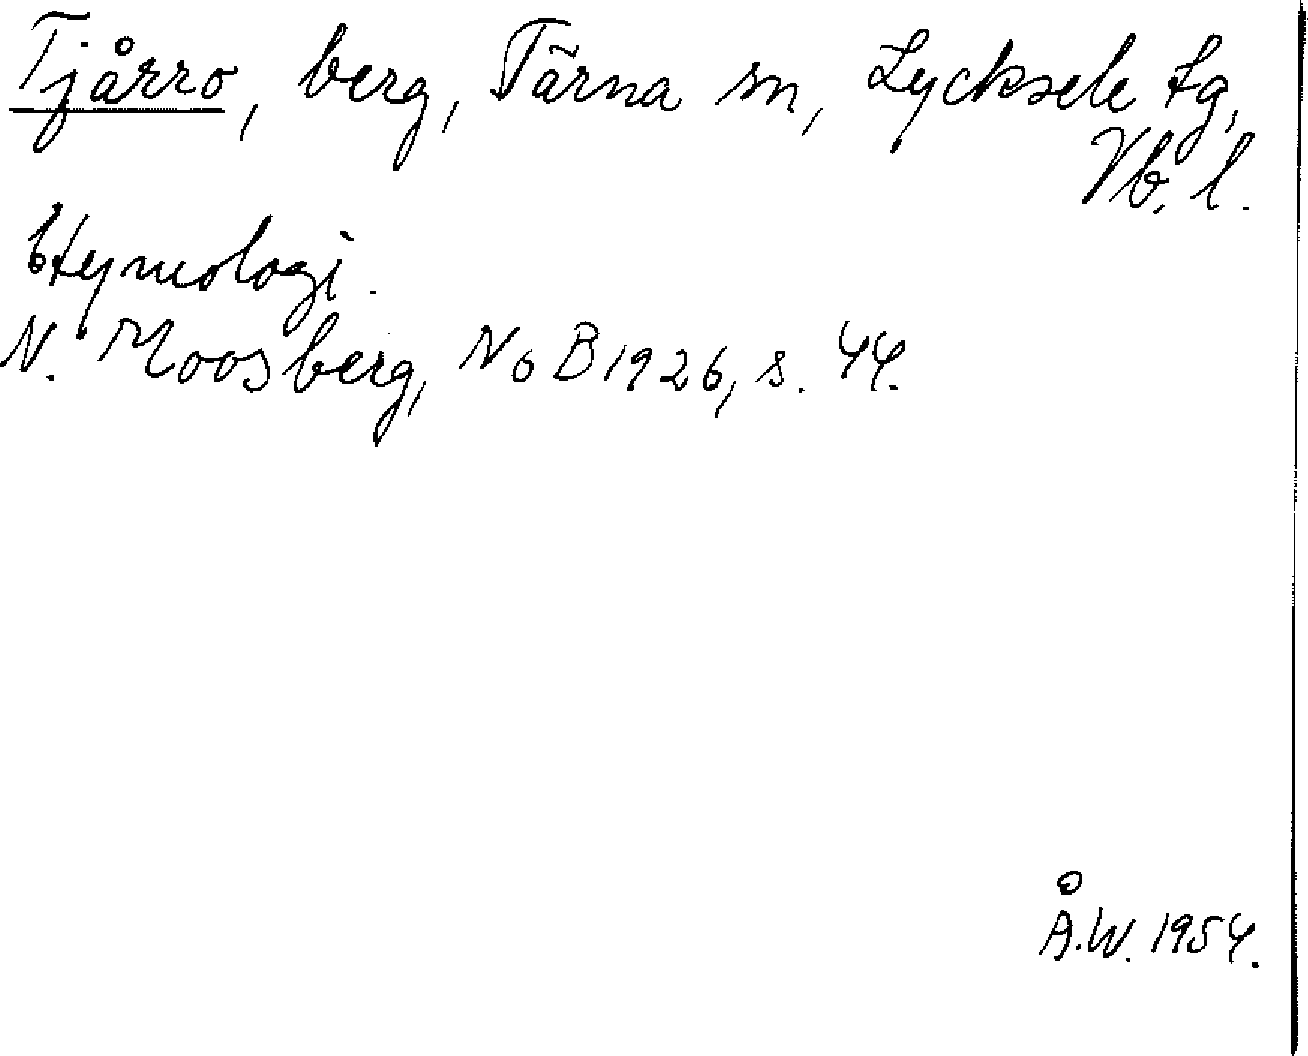 Tjårro, berg, Tärna sn, Lycksele tg,
Vb. l.
Etymologi.
N. Moosberg, NoB 1926, s. 44.
Å.W. 1954.